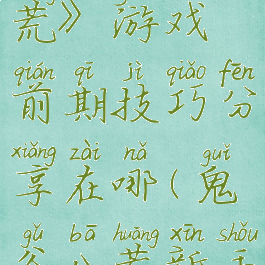 荒》游戏
qián qī jì qiǎo fēn
前期技巧分
xiǎng zài nǎ guǐ
享在哪(鬼
gǔ bā huāng xīn shǒu
谷八荒新手